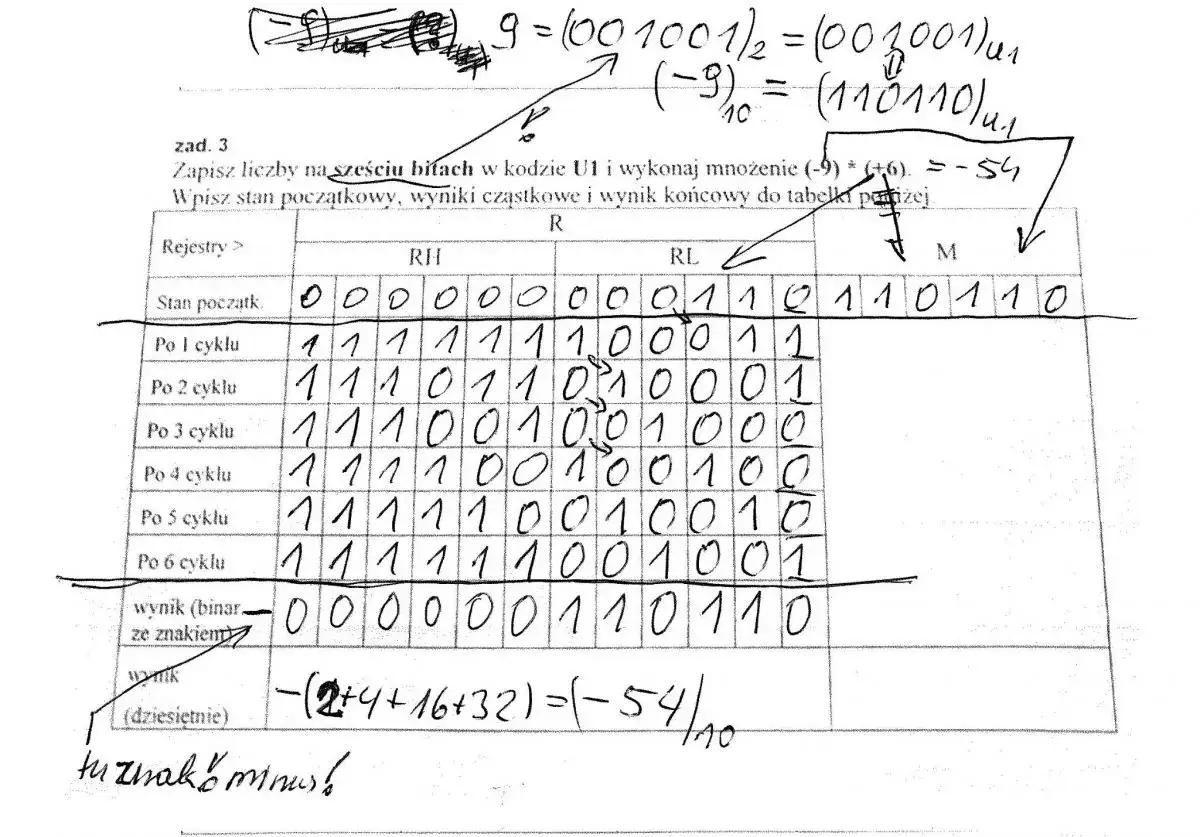 9 = (001001)2 = (001001)U1
(-9)10 = (110110)U1
zad. 3
Zapisz liczby na sześciu bitach w kodzie U1 i wykonaj mnożenie (-9) * (+6). = -54
Wpisz stan początkowy, wyniki cząstkowe i wynik końcowy do tabelki poniżej
Rejestry > R
RH RL M
Stan początk. 0 0 0 0 0 0 0 0 0 1 1 0 1 1 0 1 1 0
Po 1 cyklu 1 1 1 1 1 1 1 0 0 0 1 1
Po 2 cyklu 1 1 1 0 1 1 0 1 0 0 0 1
Po 3 cyklu 1 1 1 0 0 1 0 0 1 0 0 0
Po 4 cyklu 1 1 1 1 0 0 1 0 0 1 0 0
Po 5 cyklu 1 1 1 1 1 0 0 1 0 0 1 0
Po 6 cyklu 1 1 1 1 1 1 0 0 1 0 0 1
wynik (binar. - 0 0 0 0 0 0 1 1 0 1 1 0
ze znakiem)
wynik
(dziesiętnie) -(2+4+16+32) = (-54)10
tu znak! minus!